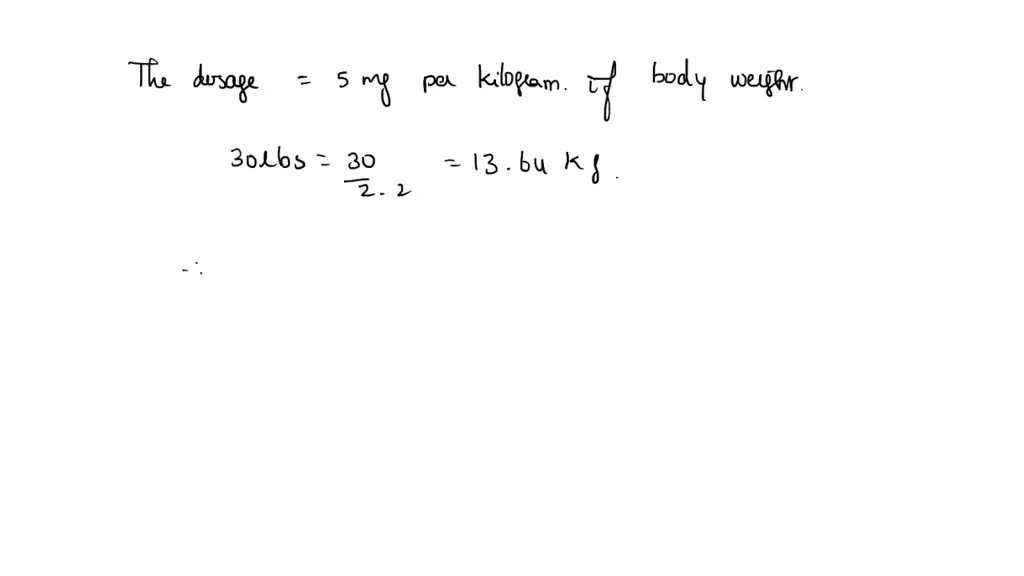 The dosage = 5 mg per kilogram. of body weight.
30lbs = 30/2.2 = 13.64 kg.
∴